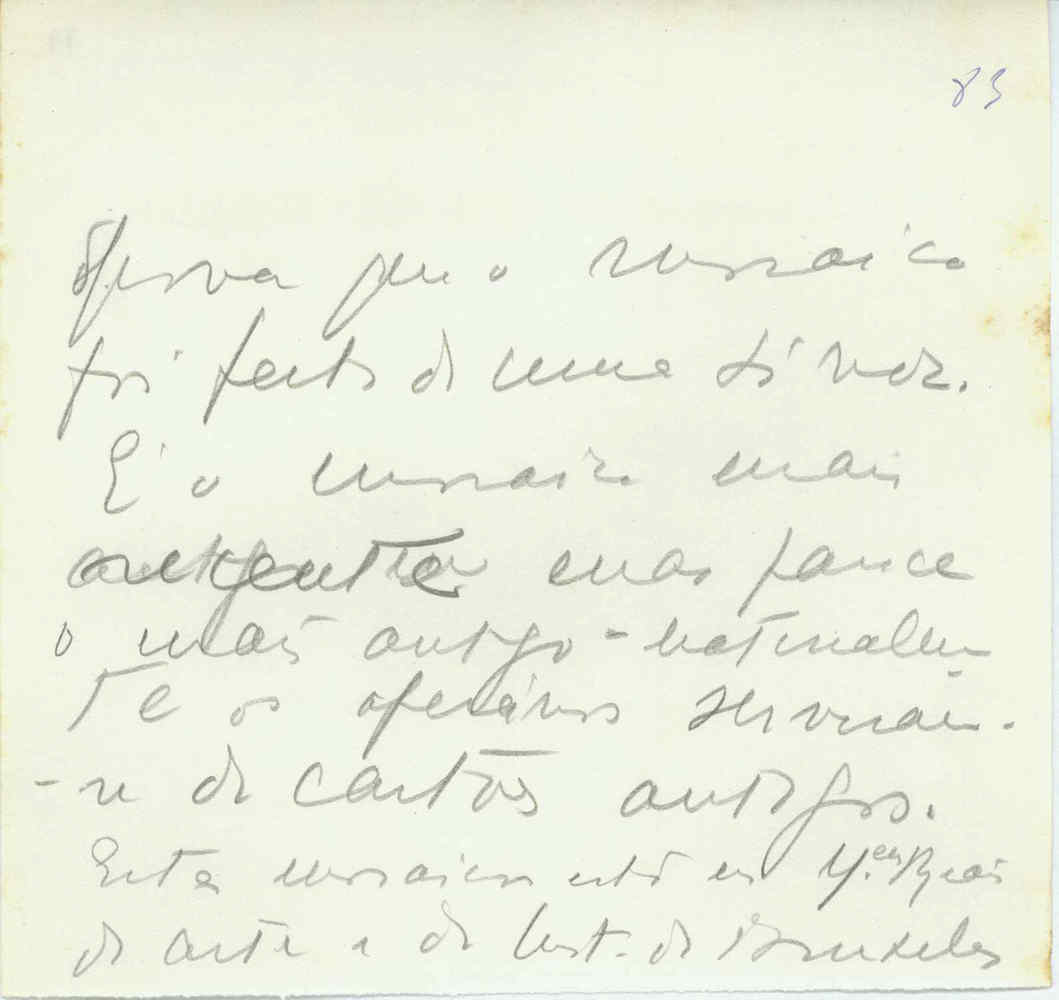 83
prova que o mosaico
foi feito de uma só vez.
É o mosaico mais
mas parece
o mais antigo - naturalmen
te os operários serviram-
-se de cartões antigos.
Estes mosaicos estão em M.eus Reais
de arte e de hist. de Bruxelas